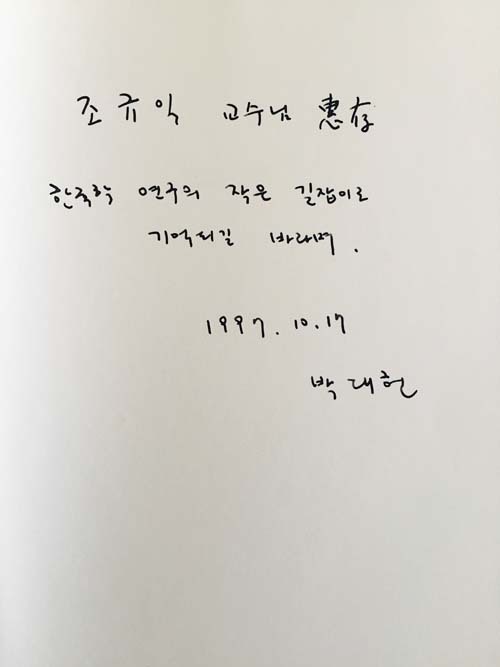 조규익 교수님 惠存
한국학 연구의 작은 길잡이로
기억되길 바라며.
1997. 10. 17
박대헌